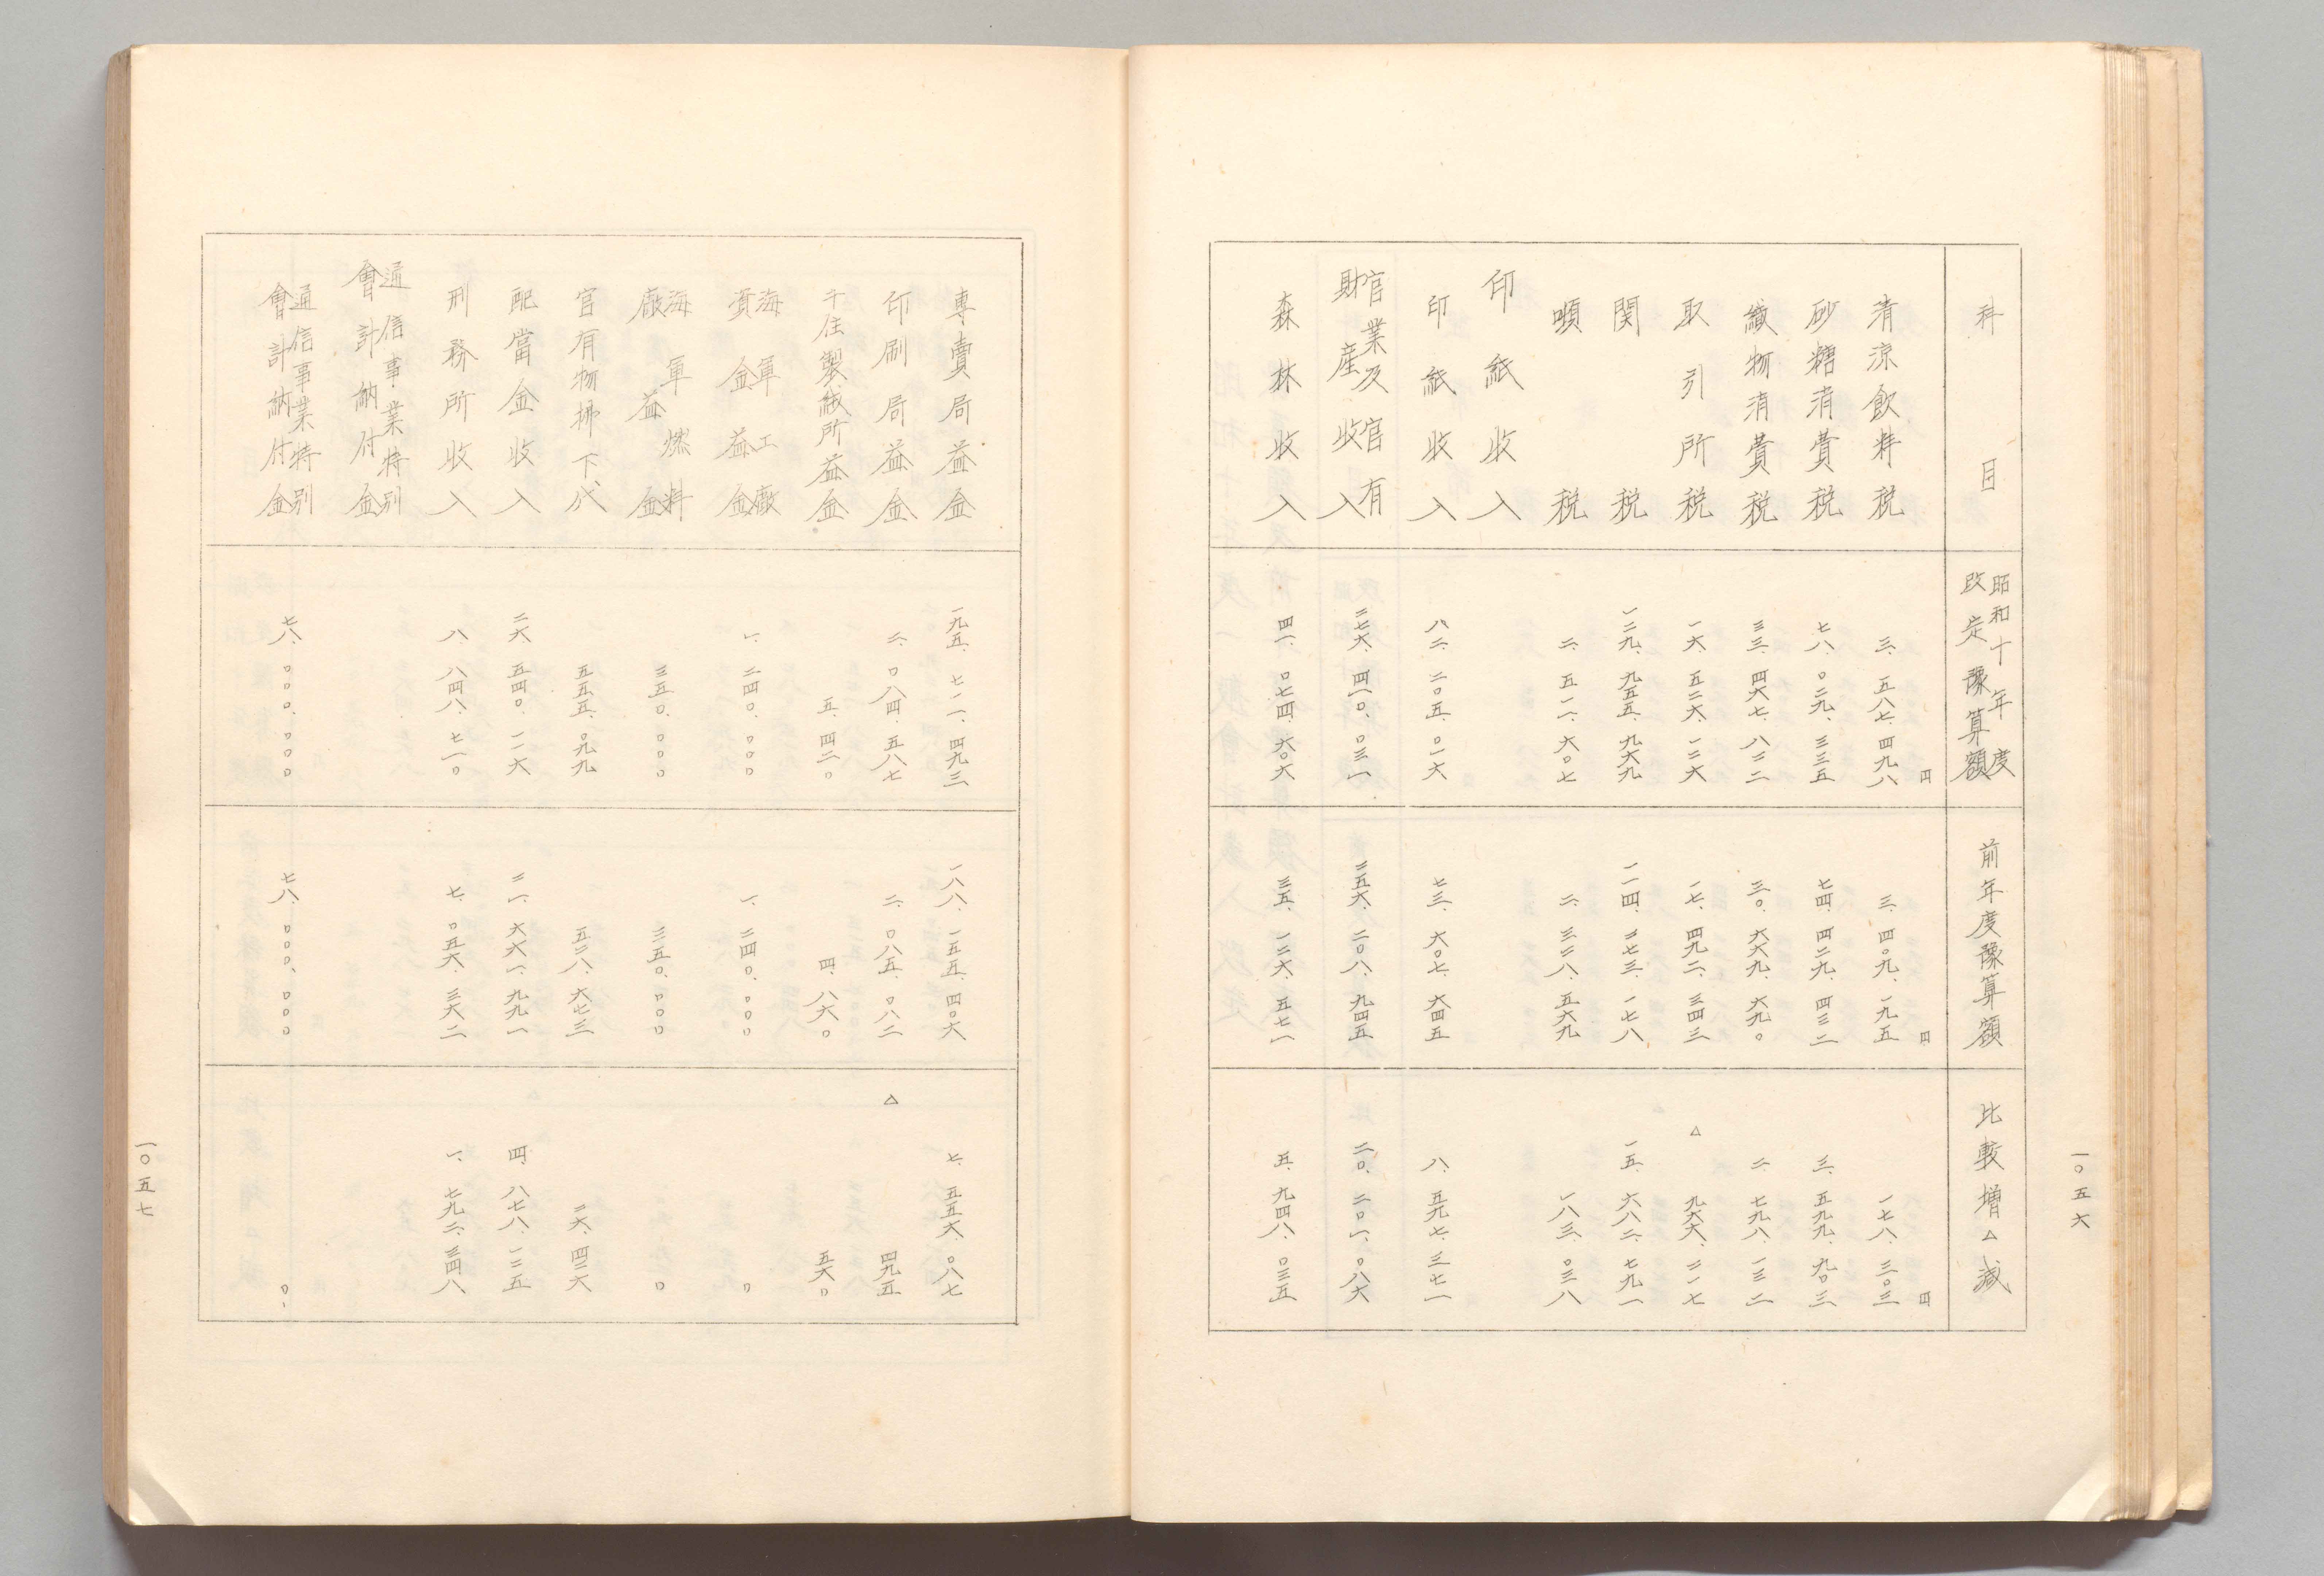 一〇五六
科目
昭和十年度
改定豫算額
前年度豫算額
比較増△減
円
円
円
清涼飲料税
三、五八七、四九八
三、四〇九、一九五
一七八、三〇三
砂糖消費税
七八、〇二九、三三五
七四、四二九、四三二
三、五九九、九〇三
織物消費税
三三、四六七、八二二
三〇、六六九、六九〇
二、七九八、一三二
取引所税
一六、五二六、一二六
一七、四九二、三四三
△九六六、二一七
関税
一二九、九五五、九六九
一一四、二七三、一七八
一五、六八二、七九一
噸税
二、五一一、六〇七
二、三二八、五六九
一八三、〇三八
印紙收入
印紙收入
八二、二〇五、〇一六
七三、六〇七、六四五
八、五九七、三七一
官業及官有
財産收入
二七六、四一〇、〇三一
二五六、二〇八、九四五
二〇、二〇一、〇八六
森林收入
四一、〇七四、六〇六
三五、一二六、五七一
五、九四八、〇三五
專賣局益金
一九五、七一一、四九三
一八八、一五五、四〇六
七、五五六、〇八七
印刷局益金
二、〇八四、五八七
二、〇八五、〇八二
△四九五
千住製絨所益金
五、四二〇
四、八六〇
五六〇
海軍工廠
資金益金
一、二四〇、〇〇〇
一、二四〇、〇〇〇
〇
海軍燃料
廠益金
三五〇、〇〇〇
三五〇、〇〇〇
〇
官有物拂下代
五五五、〇九九
五二八、六七三
二六、四二六
配當金收入
二六、五四〇、一一六
二一、六六一、九九一
四、八七八、一二五
刑務所收入
八、八四八、七一〇
七、〇五六、三六二
一、七九二、三四八
通信事業特別
會計納付金
通信事業特別
會計納付金
七八、〇〇〇、〇〇〇
七八、〇〇〇、〇〇〇
〇
一〇五七